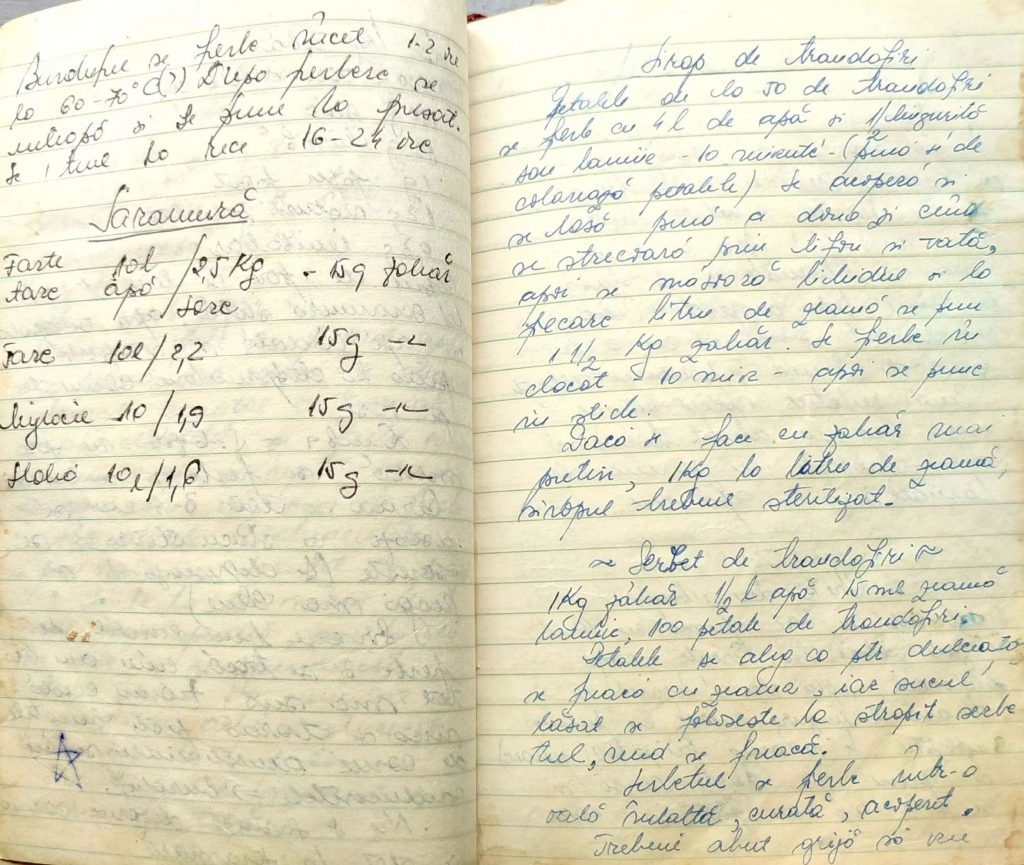 Burduful se fierbe încet 1-2 ore
la 60-70°C(?) După fierbere se
și se pune la presat.
Se ține la rece 16-24 ore
Saramură
Foarte 10l / 2,5 Kg - 15g zahăr
tare apă sare
Tare 10l / 2,2 15g -"-
Mijlocie 10 / 1,9 15g -"-
Slabă 10l / 1,6 15g -"-
Sirop de trandafiri
Petalele de la 50 de trandafiri
se fierb cu 4 l de apă și 1/2 linguriță
sare lămîie - 10 minute - (pînă se
petalele) Se acoperă și
se lasă pînă a doua zi cînd
se strecoară prin tifon și vată,
apoi se măsoară lichidul și la
fiecare litru de zeamă se pun
1 1/2 Kg zahăr. Se fierbe în
clocot - 10 min - apoi se pune
în sticle.
Dacă se face cu zahăr mai
puțin, 1Kg la litru de zeamă,
siropul trebuie sterilizat.
~ Șerbet de trandafiri ~
1Kg zahăr 1/2 l apă 15 ml zeamă
lămîie, 100 petale de trandafiri.
Petalele se aleg ca ptr dulceață
se freacă cu zeama, iar sucul
lăsat se folosește la stropit șerbe
tul, cînd se freacă.
Șerbetul se fierbe într-o
oală înaltă, curată, acoperit.
Trebuie avut grijă să nu